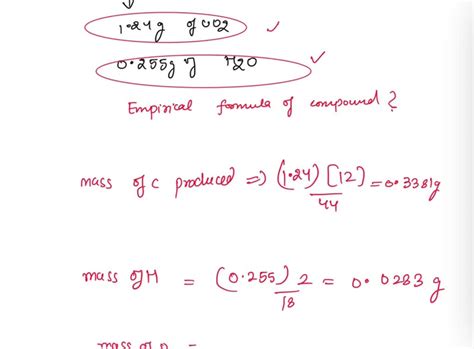 1.24g of CO2 ✓
0.255g of H2O ✓
Empirical formula of compound?
mass of C produced => (1.24) [12] / 44 = 0.3381g
mass of H = (0.255) 2 / 18 = 0.0283 g
mass of